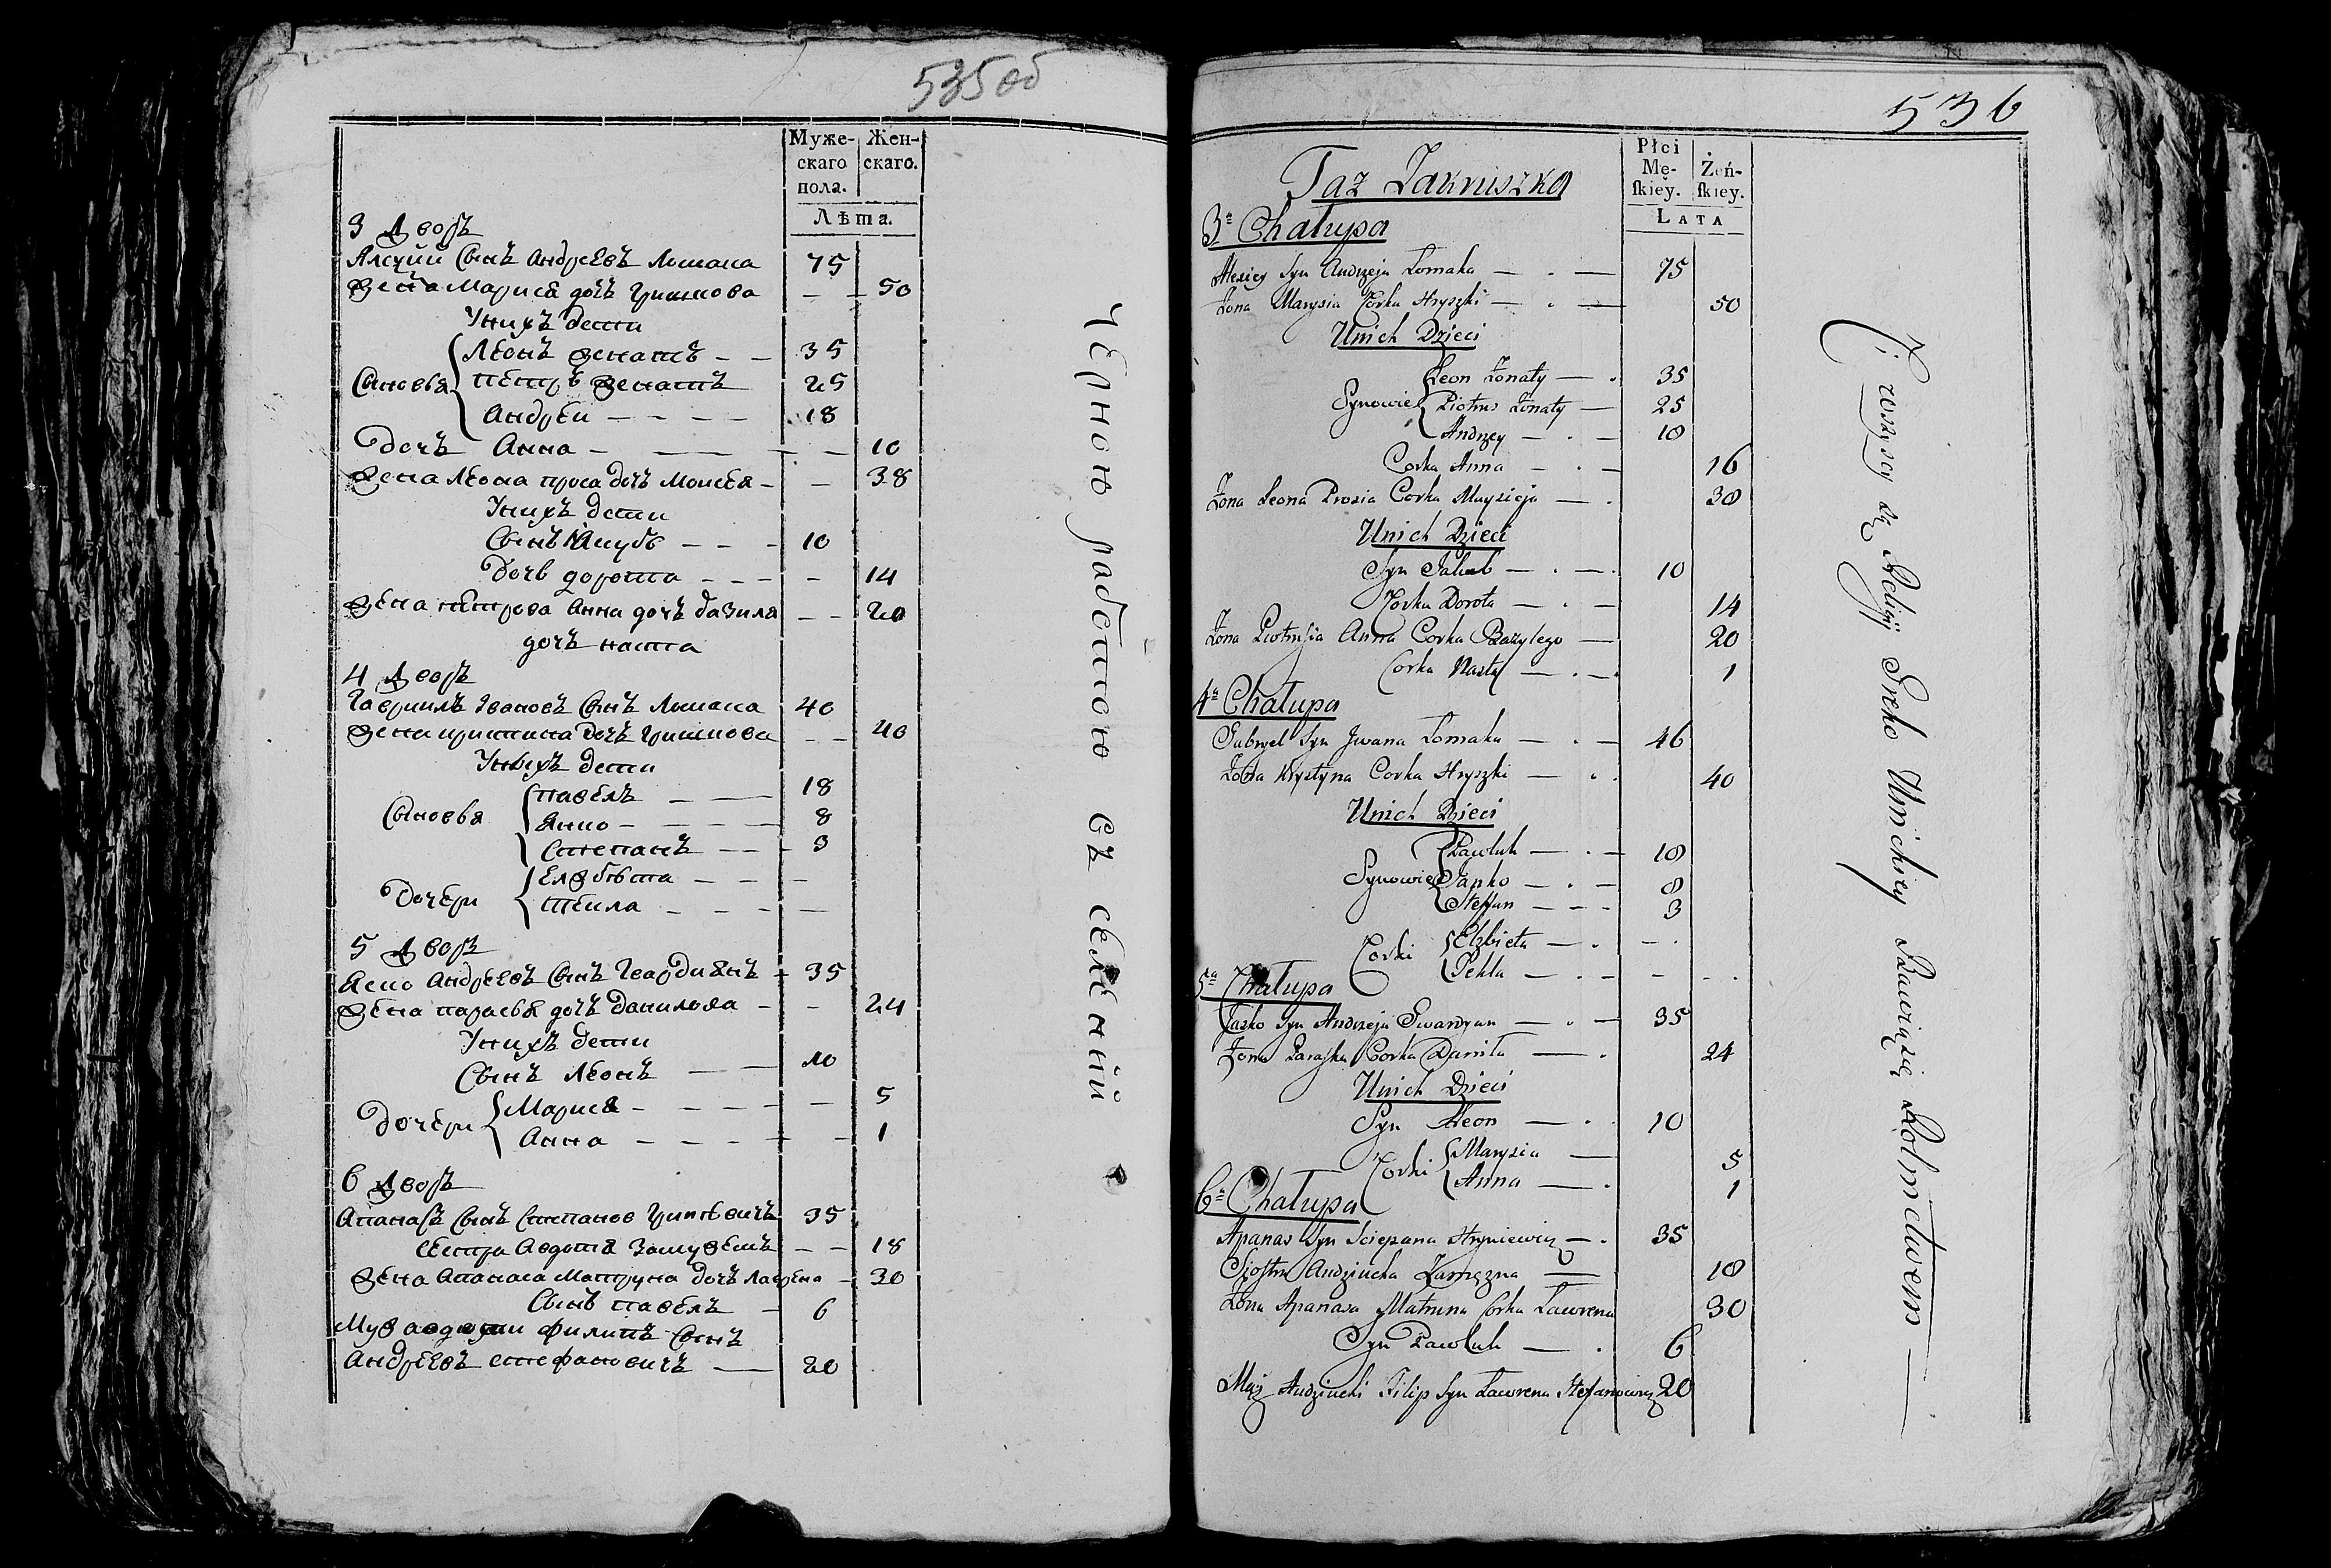 535об
Муже-
скаго
пола.
Жен-
скаго.
Лѣта.
3 Дворъ
Алексій Сынъ Андреевъ Ломака 75
Жена Марися дочъ Гришкова — — 50
Унихъ дети
Сыновья { Леонъ женатъ — — 35
Петръ женатъ 25
Андрей — — — — 18
дочъ Анна — — — — — 10
Жена Леона проса дочъ Моисея — — 38
Унихъ дети
Сынъ Якубъ — — — 10
дочь дорота — — — — 14
Жена петрова Анна дочъ базиля — — 20
дочъ наста
4 Дворъ
Гавриилъ Ивановъ Сынъ Ломака 40
Жена кристина дочъ Гришкова — — 40
Унихъ дети
Сыновья { павелъ — — 18
Янко — — — — 8
Степанъ — — — 3
Дочери { Елжбѣта — — —
Текла — — — —
5 Дворъ
Яско Андреевъ Сынъ Гвардиянъ — 35
Жена параска дочъ данилова — — 24
Унихъ дети
Сынъ Леонъ — — 10
Дочери { Марися — — — — — 5
Анна — — — — — 1
6 Дворъ
Апанасъ Сынъ Степанов Гриневичъ 35
сестра Авдотя Замужемъ — — 18
Жена Апанаса Матруна дочъ лаврена — 30
Сынъ павелъ — 6
Мужъ авдоти филипъ Сынъ
Андреевъ стефановичъ — 20
Черною работою съ селеній
536
Płci
Mę-
skiéy.
Żeń-
skiey.
LATA
Taż Zakruszka
3a Chałupa
Alexiey Syn Andrzeja Łomaka — . — 75
Żona Marysia Corka Hryszki — . — 50
Unich Dzieci
Synowie { Leon Żonaty — . 35
Piotruś Żonaty — 25
Andrzey — . — 18
Corka Anna — . — 16
Żona Leona Prosia Corka Moyzieja — . 38
Unich Dzieci
Syn Jakub — . — . 10
Corka Dorota — . — 14
Żona Piotrusia Anna Corka Bazylego — 20
Corka Nasta — . — . 1
4a Chałupa
Gabryel Syn Jwana Łomaka — . — 46
Żona Krystyna Corka Hryszki — . 40
Unich Dzieci
Synowie { Pawluk — . — 18
Janko — . — 8
Steffan — — . 3
Corki { Elzbieta — . — .
Tekla — . — — — .
5a Chałupa
Jasko Syn Andrzeja Gwardyan — . — 35
Żona Paraska Corka Daniła — . 24
Unich Dzieci
Syn Leon — . 10
Corki { Marysia — 5
Anna — . 1
6a Chałupa
Apanas Syn Sciepana Hryniewicz — . 35
Siostra Audziucha Zamęzna — 18
Żona Apanasa Matruna Corka Ławrena 30
Syn Pawluk — . 6
Mąż Audziuchi Filip Syn Ławrena Stefanowicz 20
Ci wszyscy są Religij Greko Unickiey Bawią się Rolnictwem —